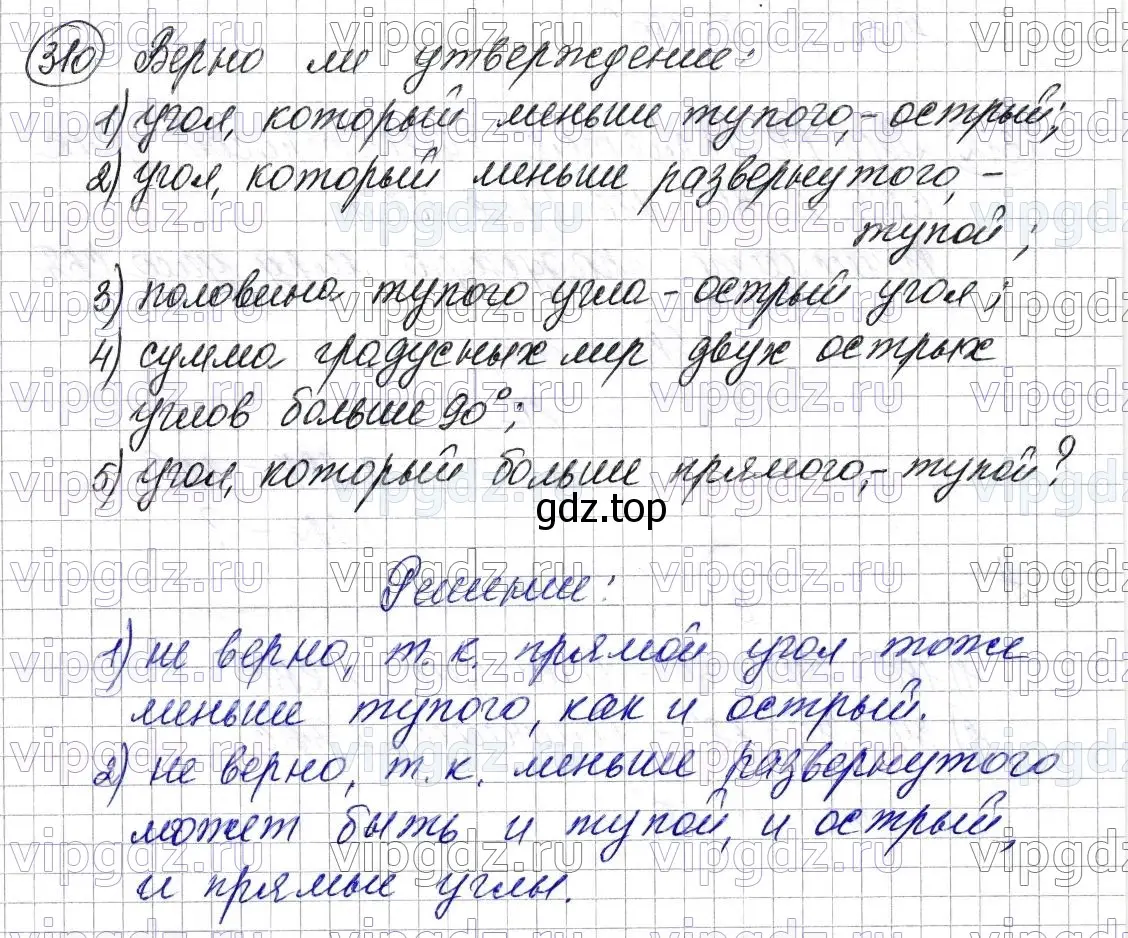 310 Верно ли утверждение:
1) угол, который меньше тупого, - острый;
2) угол, который меньше развернутого, -
тупой;
3) половина тупого угла - острый угол;
4) сумма градусных мер двух острых
углов больше 90°;
5) угол, который больше прямого, - тупой?
gdz.top
Решение:
1) не верно, т.к. прямой угол тоже
меньше тупого, как и острый.
2) не верно, т.к. меньше развернутого
может быть и тупой, и острый,
и прямые углы.
vipgdz.ru